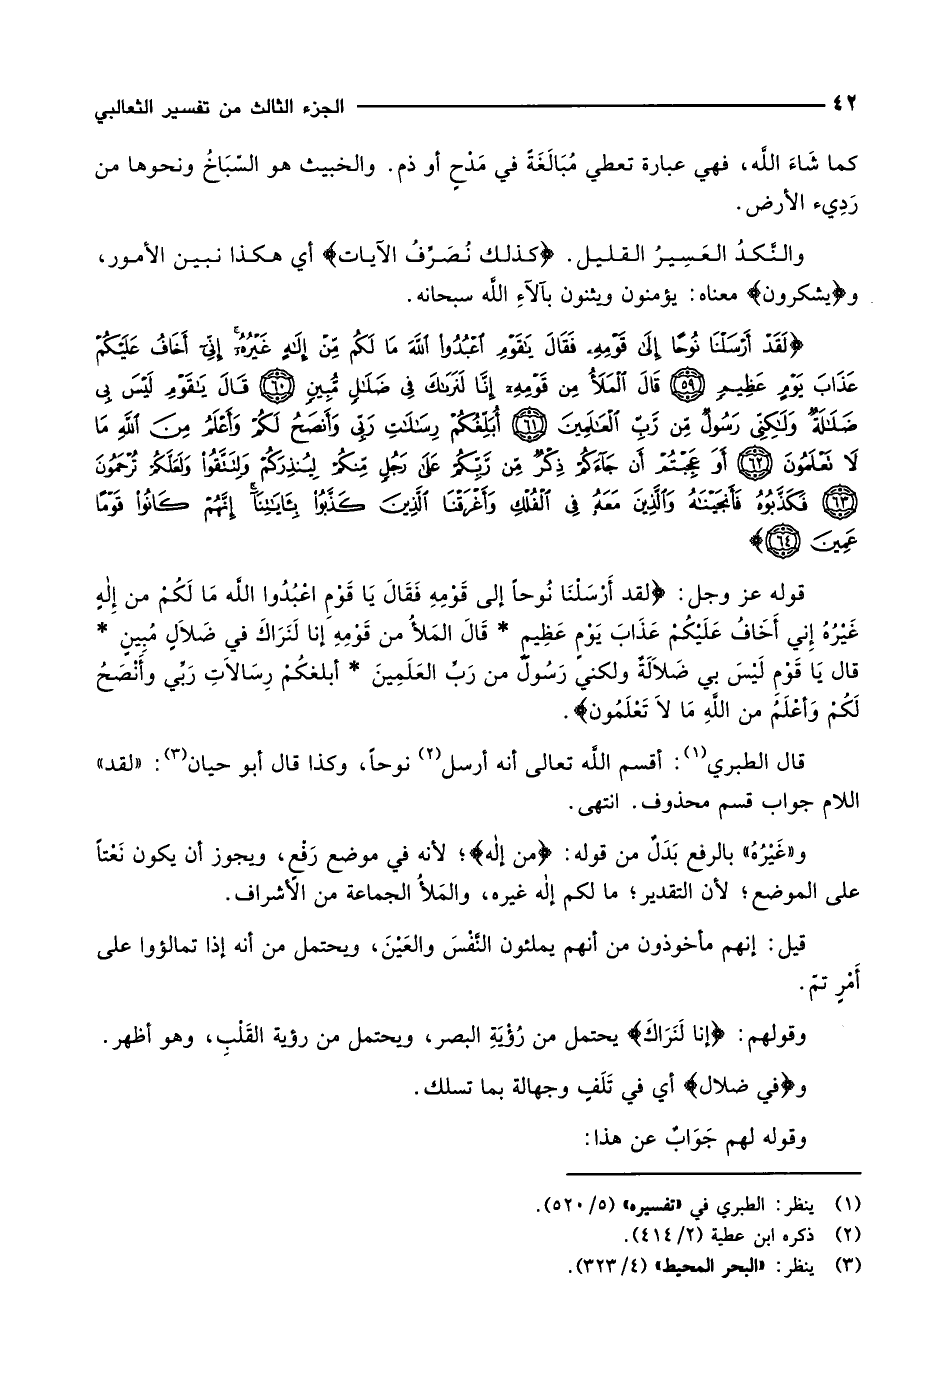 ٤٢ الجزء الثالث من تفسير الثعالبي
كما شَاءَ اللَّه، فهي عبارة تعطي مُبَالَغَةً في مَدْحٍ أو ذم. والخبيث هو السِّبَاخُ ونحوها من
رَدِيء الأرض.
والنَّكدُ العَسِيرُ القليل. ﴿كذلك نُصَرِّفُ الآيات﴾ أي هكذا نبين الأمور،
و﴿يشكرون﴾ معناه: يؤمنون ويثنون بآلاءِ اللَّه سبحانه.
﴿لَقَدْ أَرْسَلْنَا نُوحًا إِلَىٰ قَوْمِهِۦ فَقَالَ يَٰقَوْمِ ٱعْبُدُوا۟ ٱللَّهَ مَا لَكُم مِّنْ إِلَٰهٍ غَيْرُهُۥٓ إِنِّىٓ أَخَافُ عَلَيْكُمْ
عَذَابَ يَوْمٍ عَظِيمٍ ﴿٥٩﴾ قَالَ ٱلْمَلَأُ مِن قَوْمِهِۦٓ إِنَّا لَنَرَىٰكَ فِى ضَلَٰلٍ مُّبِينٍ ﴿٦٠﴾ قَالَ يَٰقَوْمِ لَيْسَ بِى
ضَلَٰلَةٌ وَلَٰكِنِّى رَسُولٌ مِّن رَّبِّ ٱلْعَٰلَمِينَ ﴿٦١﴾ أُبَلِّغُكُمْ رِسَٰلَٰتِ رَبِّى وَأَنصَحُ لَكُمْ وَأَعْلَمُ مِنَ ٱللَّهِ مَا
لَا تَعْلَمُونَ ﴿٦٢﴾ أَوَ عَجِبْتُمْ أَن جَآءَكُمْ ذِكْرٌ مِّن رَّبِّكُمْ عَلَىٰ رَجُلٍ مِّنكُمْ لِيُنذِرَكُمْ وَلِتَتَّقُوا۟ وَلَعَلَّكُمْ تُرْحَمُونَ
﴿٦٣﴾ فَكَذَّبُوهُ فَأَنجَيْنَٰهُ وَٱلَّذِينَ مَعَهُۥ فِى ٱلْفُلْكِ وَأَغْرَقْنَا ٱلَّذِينَ كَذَّبُوا۟ بِـَٔايَٰتِنَآ إِنَّهُمْ كَانُوا۟ قَوْمًا
عَمِينَ ﴿٦٤﴾﴾
قوله عز وجل: ﴿لقد أَرْسَلْنَا نُوحاً إلى قَوْمِهِ فَقَالَ يَا قَوْمِ اعْبُدُوا اللَّه مَا لَكُمْ من إلٰهٍ
غَيْرُهُ إني أَخَافُ عَلَيْكُمْ عَذَابَ يَوْمٍ عَظِيمٍ * قَالَ المَلأُ من قَوْمِهِ إنا لَنَرَاكَ في ضَلاَلٍ مُبِينٍ *
قال يَا قَوْمِ لَيْسَ بي ضَلاَلَةٌ ولكني رَسُولٌ من رَبِّ العَلَمِينَ * أبلغكُمْ رِسَالاَتِ رَبِّي وأَنْصَحُ
لَكُمْ وَأعْلَمُ من اللَّهِ مَا لاَ تَعْلَمُون﴾.
قال الطبري(١): أقسم اللَّه تعالى أنه أرسل(٢) نوحاً، وكذا قال أبو حيان(٣): «لقد»
اللام جواب قسم محذوف. انتهى.
و«غَيْرُهُ» بالرفع بَدَلٌ من قوله: ﴿من إلٰه﴾؛ لأنه في موضع رَفْعٍ، ويجوز أن يكون نَعْتاً
على الموضع؛ لأن التقدير؛ ما لكم إلٰه غيره، والمَلأُ الجماعة من الأشراف.
قيل: إنهم مأخوذون من أنهم يملئون النَّفْسَ والعَيْنَ، ويحتمل من أنه إذا تمالؤوا على
أَمْرٍ تمّ.
وقولهم: ﴿إنا لَنَرَاكَ﴾ يحتمل من رُؤْيَةِ البصر، ويحتمل من رؤية القَلْبِ، وهو أظهر.
و﴿في ضلال﴾ أي في تَلَفٍ وجهالة بما تسلك.
وقوله لهم جَوَابٌ عن هذا:
(١) ينظر: الطبري في «تفسيره» (٥/ ٥٢٠).
(٢) ذكره ابن عطية (٢/ ٤١٤).
(٣) ينظر: «البحر المحيط» (٤/ ٣٢٣).